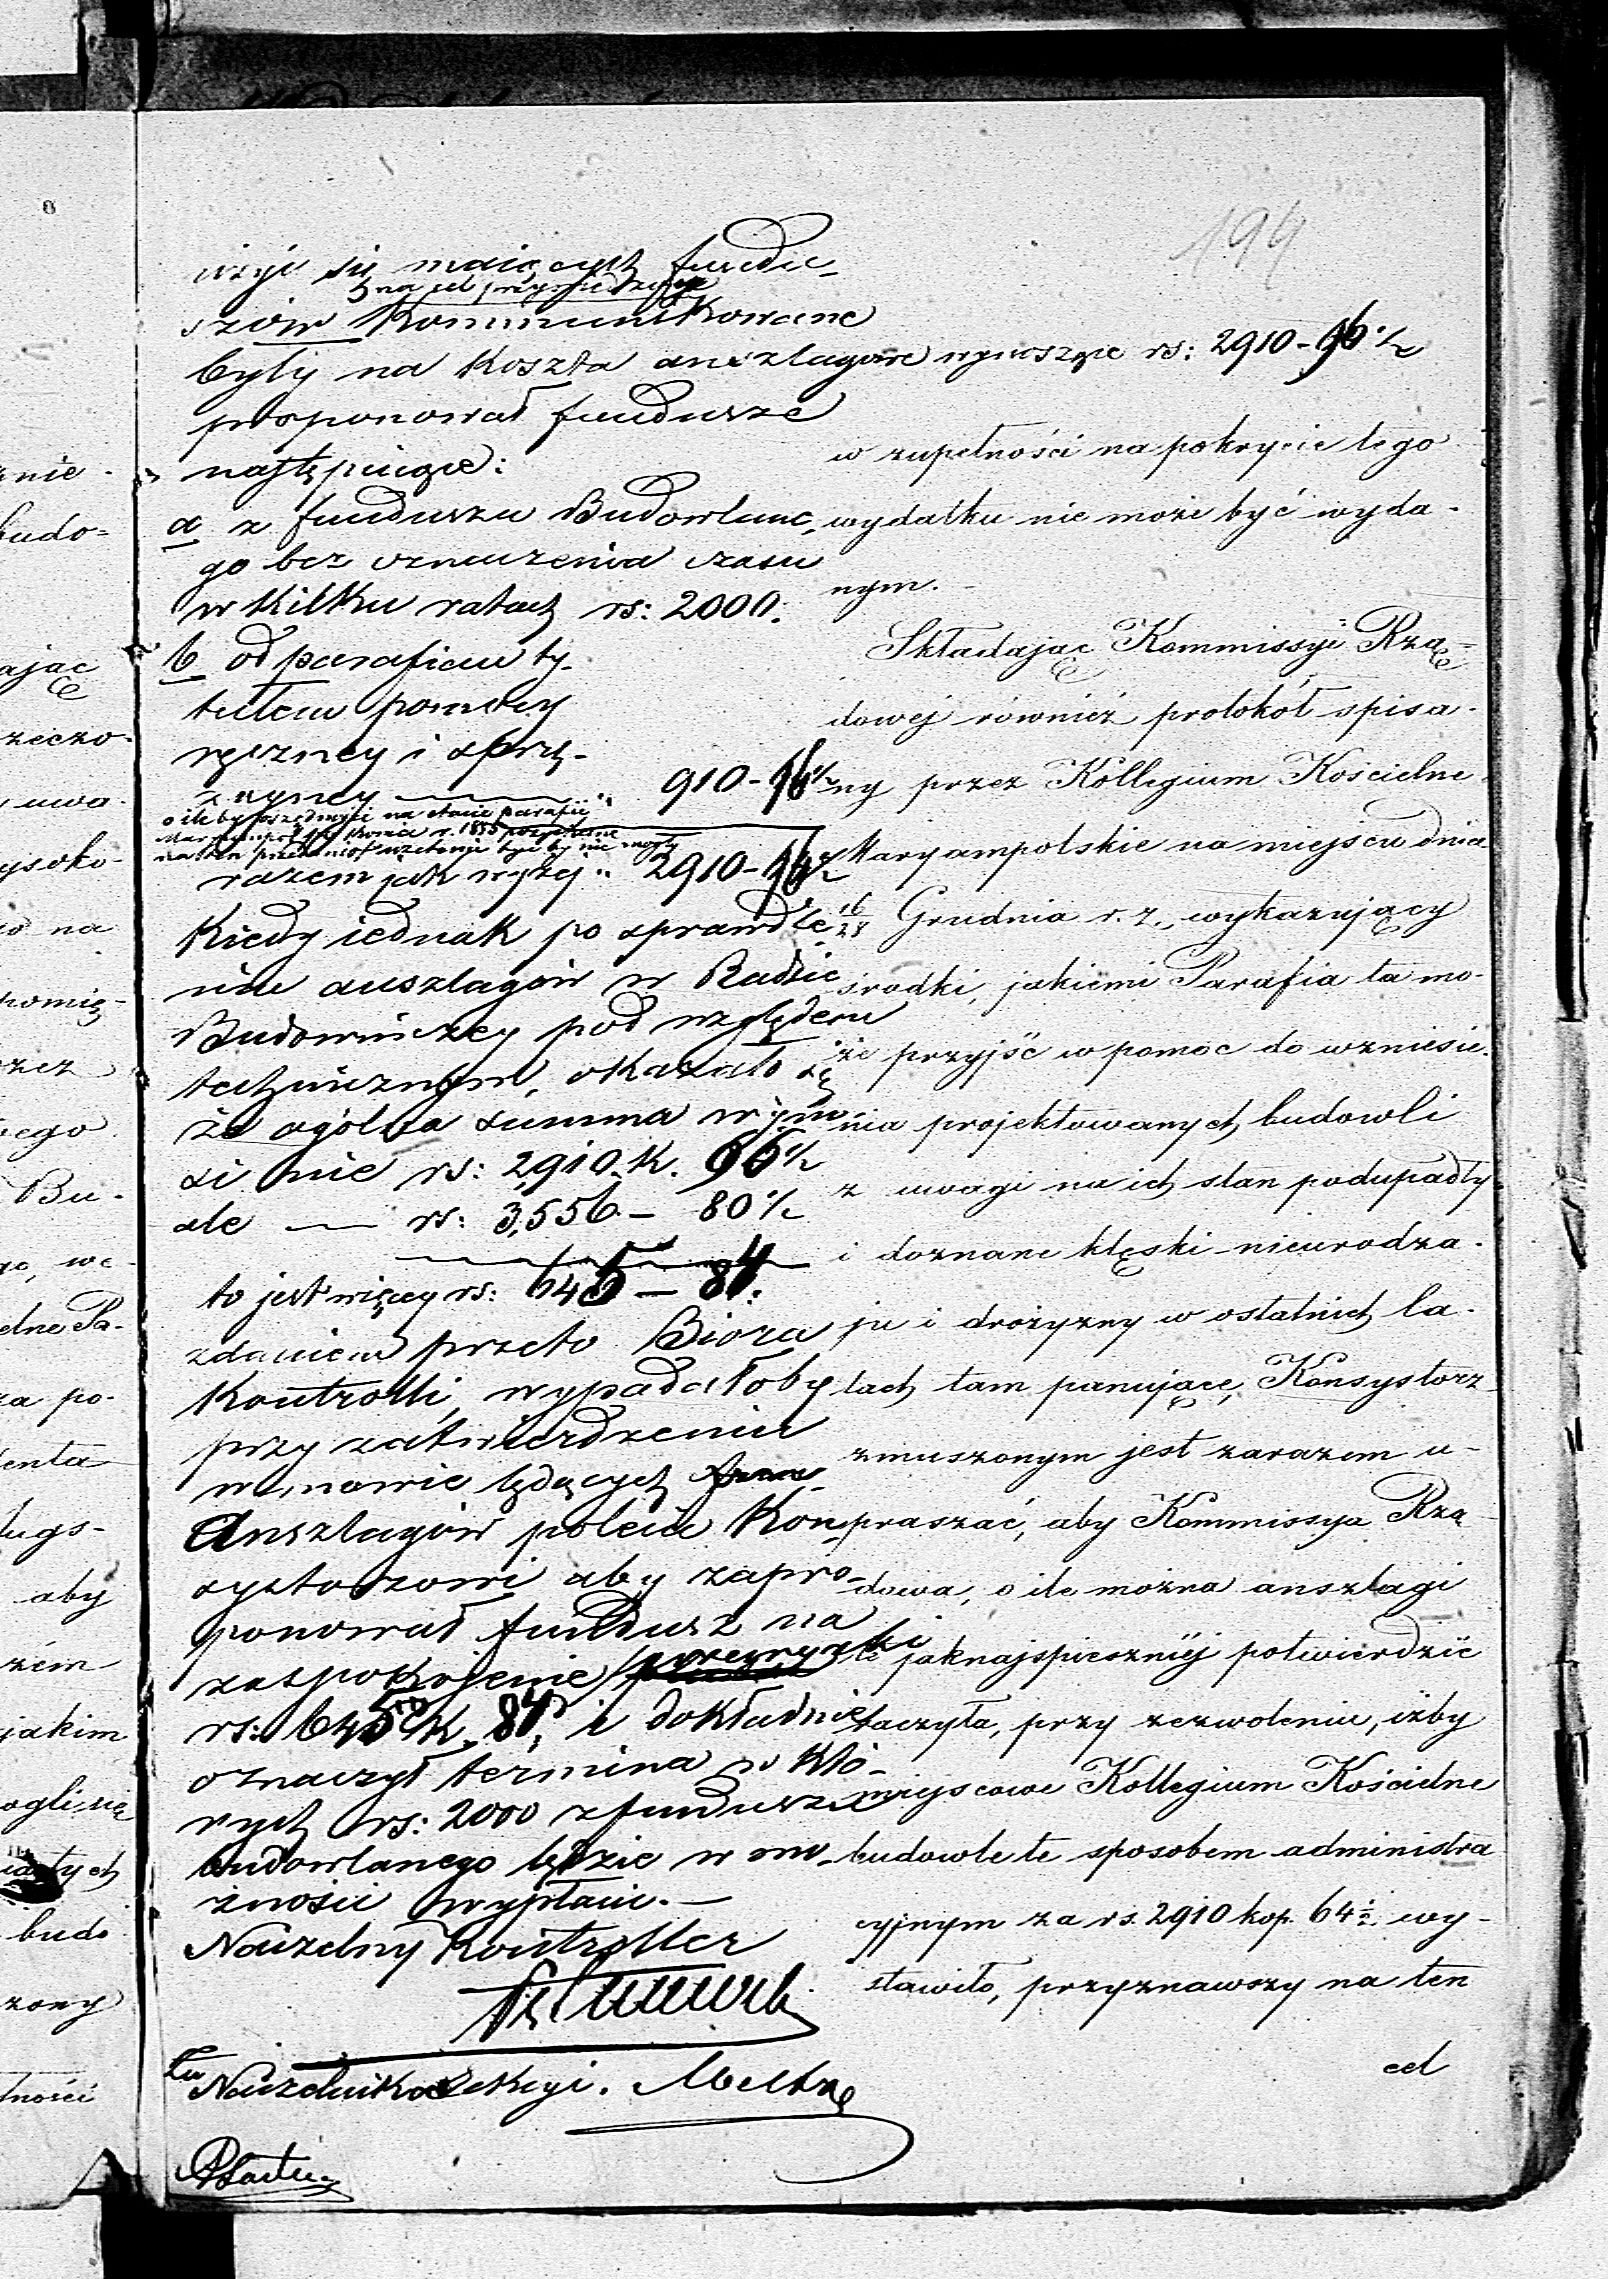 194
użyć się mających fundu-
na cel
szów Kommunikowane
były na Koszta anszlagowe wynoszące rs: 2910-96½
proponował fundusze
następujące:
a z funduszu Budowlane-
go bez oznaczenia czasu
w kilku ratach rs: 2000.
b od parafian ty-
tułem pomocy
ręczney i sprzę-
żayney " 910-96½
o ile by oszczędności na etacie parafii
Maryampol z końca r. 1855
na ten przedmiot użytemi być by nie mogły
razem jak wyżej " 2910-96½
Kiedy iednak po sprawdze-
niu anszlagów w Radzie
Budowniczey pod względem
technicznym, okazało się
że ogólna summa wyno-
si nie rs: 2,910. K. 96½
ale — rs: 3,556 — 80½
to jest więcey rs: 645 — 84.
zdaniem przeto Biora
Kontrolli, wypadałoby
przy zatwierdzeniu
w mowie będących
Anszlagów polecić Kon-
systorzowi aby zapro-
ponował fundusz na
zaspokojenie
rs: 645 K. 84, i dokładnie
oznaczył termina w któ-
rych rs: 2000 z funduszu
budowlanego będzie w mo-
żności wypłacić. —
Naczelny Kontroller
Za Naczelnika Sekcyi.
w zupełności na pokrycie tego
wydatku nie może być wyda-
nym. -
Składając Kommissyi Rzą-
dowej również protokół spisa-
ny przez Kollegium Kościelne
Maryampolskie na miejscu dnia
16/28 Grudnia r. z., wykazujący
środki, jakiemi Parafia ta mo-
że przyjść w pomoc do wzniesie-
nia projektowanych budowli
z uwagi na ich stan podupadły
i doznane klęski nieurodza-
ju i drożyzny w ostatnich la-
tach tam panujące, Konsystorz
zmuszonym jest zarazem u-
praszać, aby Kommissya Rzą-
dowa, o ile można anszlagi
te jaknajspieszniéj potwierdzić
raczyła, przy zezwoleniu, iżby
miejscowe Kollegium Kościelne
budowle te sposobem administra
cyjnym za rs. 2910 kop. 64½ wy-
stawiło, przyznawszy na ten
cel